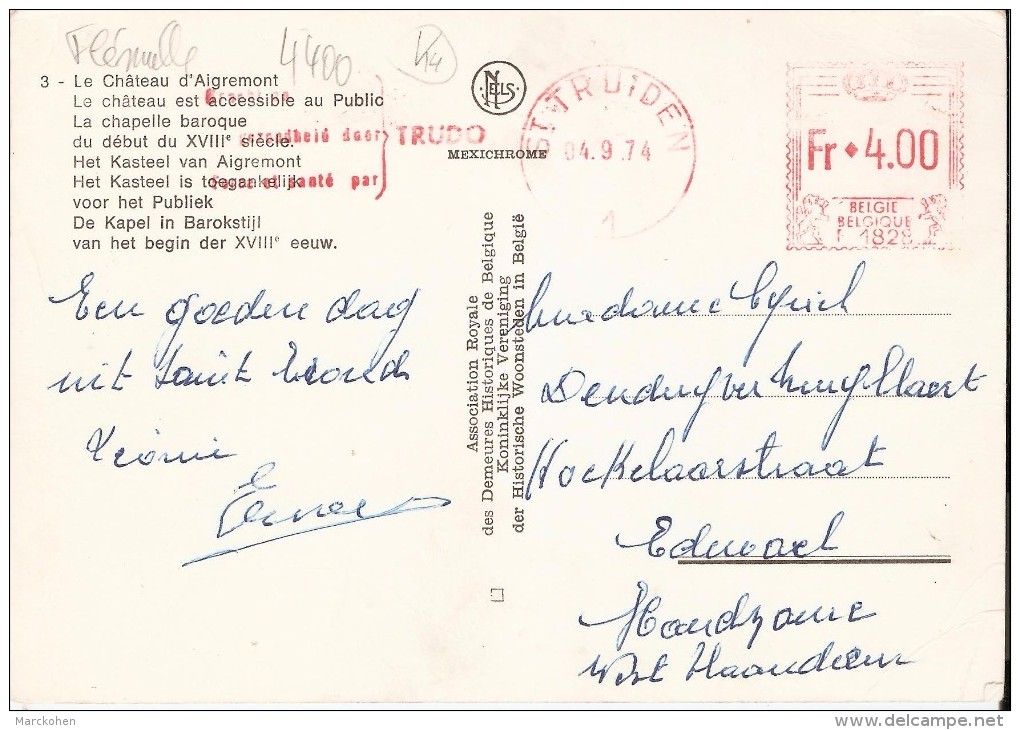 Flémalle 4400
3 - Le Château d'Aigremont
Le château est accessible au Public
La chapelle baroque
du début du XVIIIe siècle.
Het Kasteel van Aigremont
Het Kasteel is toegankelijk
voor het Publiek
De Kapel in Barokstijl
van het begin der XVIIIe eeuw.
gezondheid door
TRUDO
santé par
NELS
MEXICHROME
ST TRUIDEN
04.9.74
1
Fr 4.00
BELGIE
BELGIQUE
1828
Een goeden dag
uit Saint
Association Royale
des Demeures Historiques de Belgique
Koninklijke Vereniging
der Historische Woonsteden in België
Madame Cyriel
Hoekelaarstraat
Edewael
Handzame
West Vlaanderen
Marckohen
www.delcampe.net